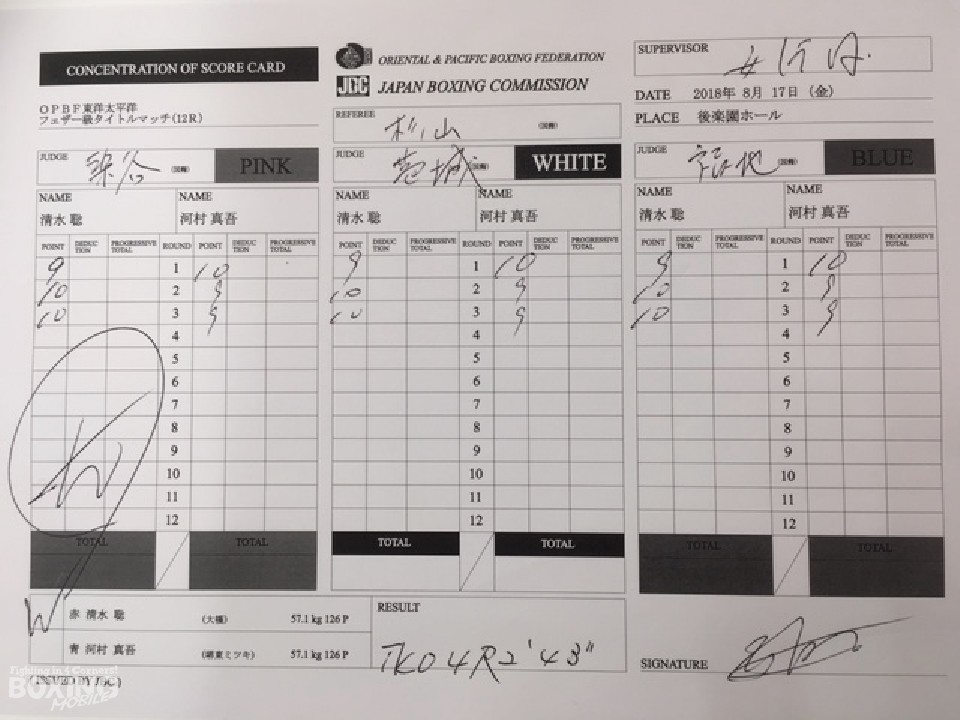 CONCENTRATION OF SCORE CARD
OPBF東洋太平洋
フェザー級タイトルマッチ(12R)
ORIENTAL & PACIFIC BOXING FEDERATION
JAPAN BOXING COMMISSION
REFEREE 杉山
SUPERVISOR
DATE 2018年 8月 17日 (金)
PLACE 後楽園ホール
JUDGE 染谷 PINK
NAME NAME
清水 聡 河村 真吾
POINT DEDUCTION PROGRESSIVE TOTAL ROUND POINT DEDUCTION PROGRESSIVE TOTAL
9 1 10
10 2 9
10 3 9
4
5
6
7
8
9
10
11
12
TOTAL TOTAL
JUDGE 葛城 WHITE
NAME NAME
清水 聡 河村 真吾
POINT DEDUCTION PROGRESSIVE TOTAL ROUND POINT DEDUCTION PROGRESSIVE TOTAL
9 1 10
10 2 9
10 3 9
4
5
6
7
8
9
10
11
12
TOTAL TOTAL
JUDGE 福地 BLUE
NAME NAME
清水 聡 河村 真吾
POINT DEDUCTION PROGRESSIVE TOTAL ROUND POINT DEDUCTION PROGRESSIVE TOTAL
9 1 10
10 2 9
10 3 9
4
5
6
7
8
9
10
11
12
TOTAL TOTAL
W 赤 清水 聡 (大橋) 57.1 kg 126 P
青 河村 真吾 (堺東ミツキ) 57.1 kg 126 P
(ISSUED BY JBC)
RESULT
TKO 4R 2'43"
SIGNATURE
Fighting in 4 Corners!
BOXING
MOBILE